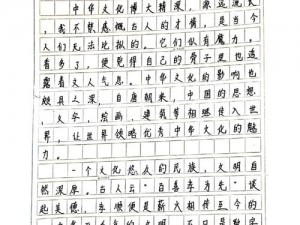 中华文化博大精深，源远流长
，我不禁感慨古人的才情，是当今
人们无法比拟的。它们似有魔力，
看多了，便觉得自己的骨子里也透
露着文人气息。中华文化的影响也
颇具之深，自唐朝来，中国的思想
，文字，绘画，建筑等相继传入世
界，让世界领略优秀中华文化的魅
力。
一个文化悠久的民族，文明自
然深厚。古人云“百善孝为先”谈
起美德，孝顺便是薪火相传至今的